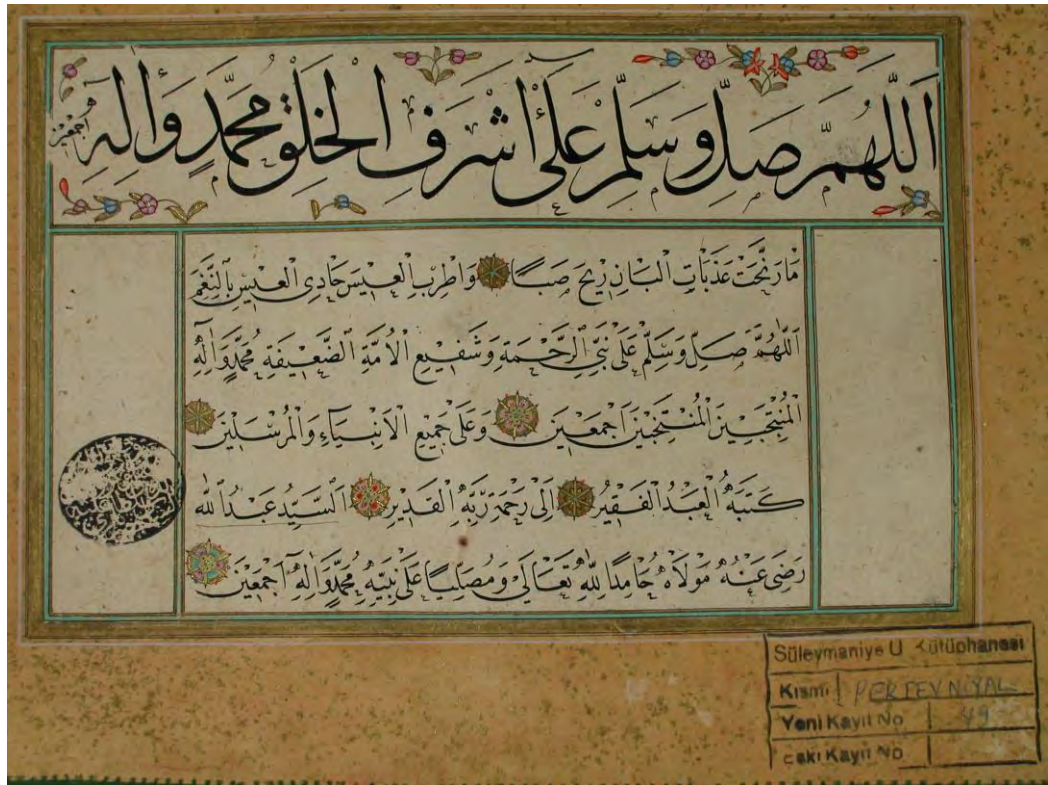 اَللّٰهُمَّ صَلِّ وَسَلِّمْ عَلٰى اَشْرَفِ الْخَلْقِ مُحَمَّدٍ وَاٰلِهٖ اَجْمَعِينَ
مَا رَنَّحَتْ عَذَبَاتِ الْبَانِ رِيحُ صَبًا وَاَطْرَبَ الْعِيسَ حَادِى الْعِيسِ بِالنَّغَمِ
اَللّٰهُمَّ صَلِّ وَسَلِّمْ عَلٰى نَبِىِّ الرَّحْمَةِ وَشَفِيعِ الْاُمَّةِ الضَّعِيفَةِ مُحَمَّدٍ وَاٰلِهِ
الْمُنْتَخَبِينَ اَجْمَعِينَ وَعَلٰى جَمِيعِ الْاَنْبِيَاءِ وَالْمُرْسَلِينَ
كَتَبَهُ الْعَبْدُ الْفَقِيرُ اِلٰى رَحْمَةِ رَبِّهِ الْقَدِيرِ اَلسَّيِّدُ عَبْدُ اللّٰه
رَضِىَ عَنْهُ مَوْلَاهُ حَامِدًا لِلّٰهِ تَعَالٰى وَمُصَلِّيًا عَلٰى نَبِيِّهِ مُحَمَّدٍ وَاٰلِهِ اَجْمَعِينَ
Süleymaniye U Kütüphanesi
Kısmı PERTEVNİYAL
Yeni Kayıt No 49
Eski Kayıt No